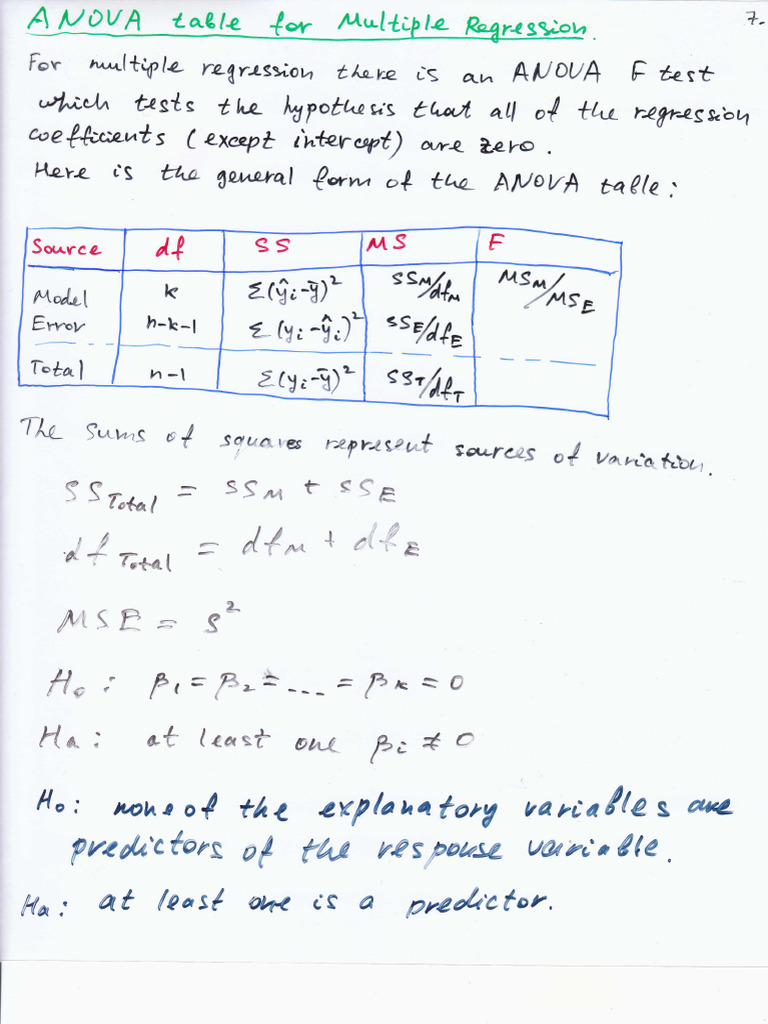 ANOVA table for Multiple Regression.
7.
For multiple regression there is an ANOVA F test
which tests the hypothesis that all of the regression
coefficients (except intercept) are zero.
Here is the general form of the ANOVA table:
Source df SS MS F
Model k Σ(ŷᵢ-ȳ)² SSM/dfM MSM/MSE
Error n-k-1 Σ(yᵢ-ŷᵢ)² SSE/dfE
Total n-1 Σ(yᵢ-ȳ)² SST/dfT
The sums of squares represent sources of variation.
SSTotal = SSM + SSE
dfTotal = dfM + dfE
MSE = S²
H₀: β₁ = β₂ = .... = βk = 0
Ha: at least one βᵢ ≠ 0
H₀: none of the explanatory variables are
predictors of the response variable.
Ha: at least one is a predictor.